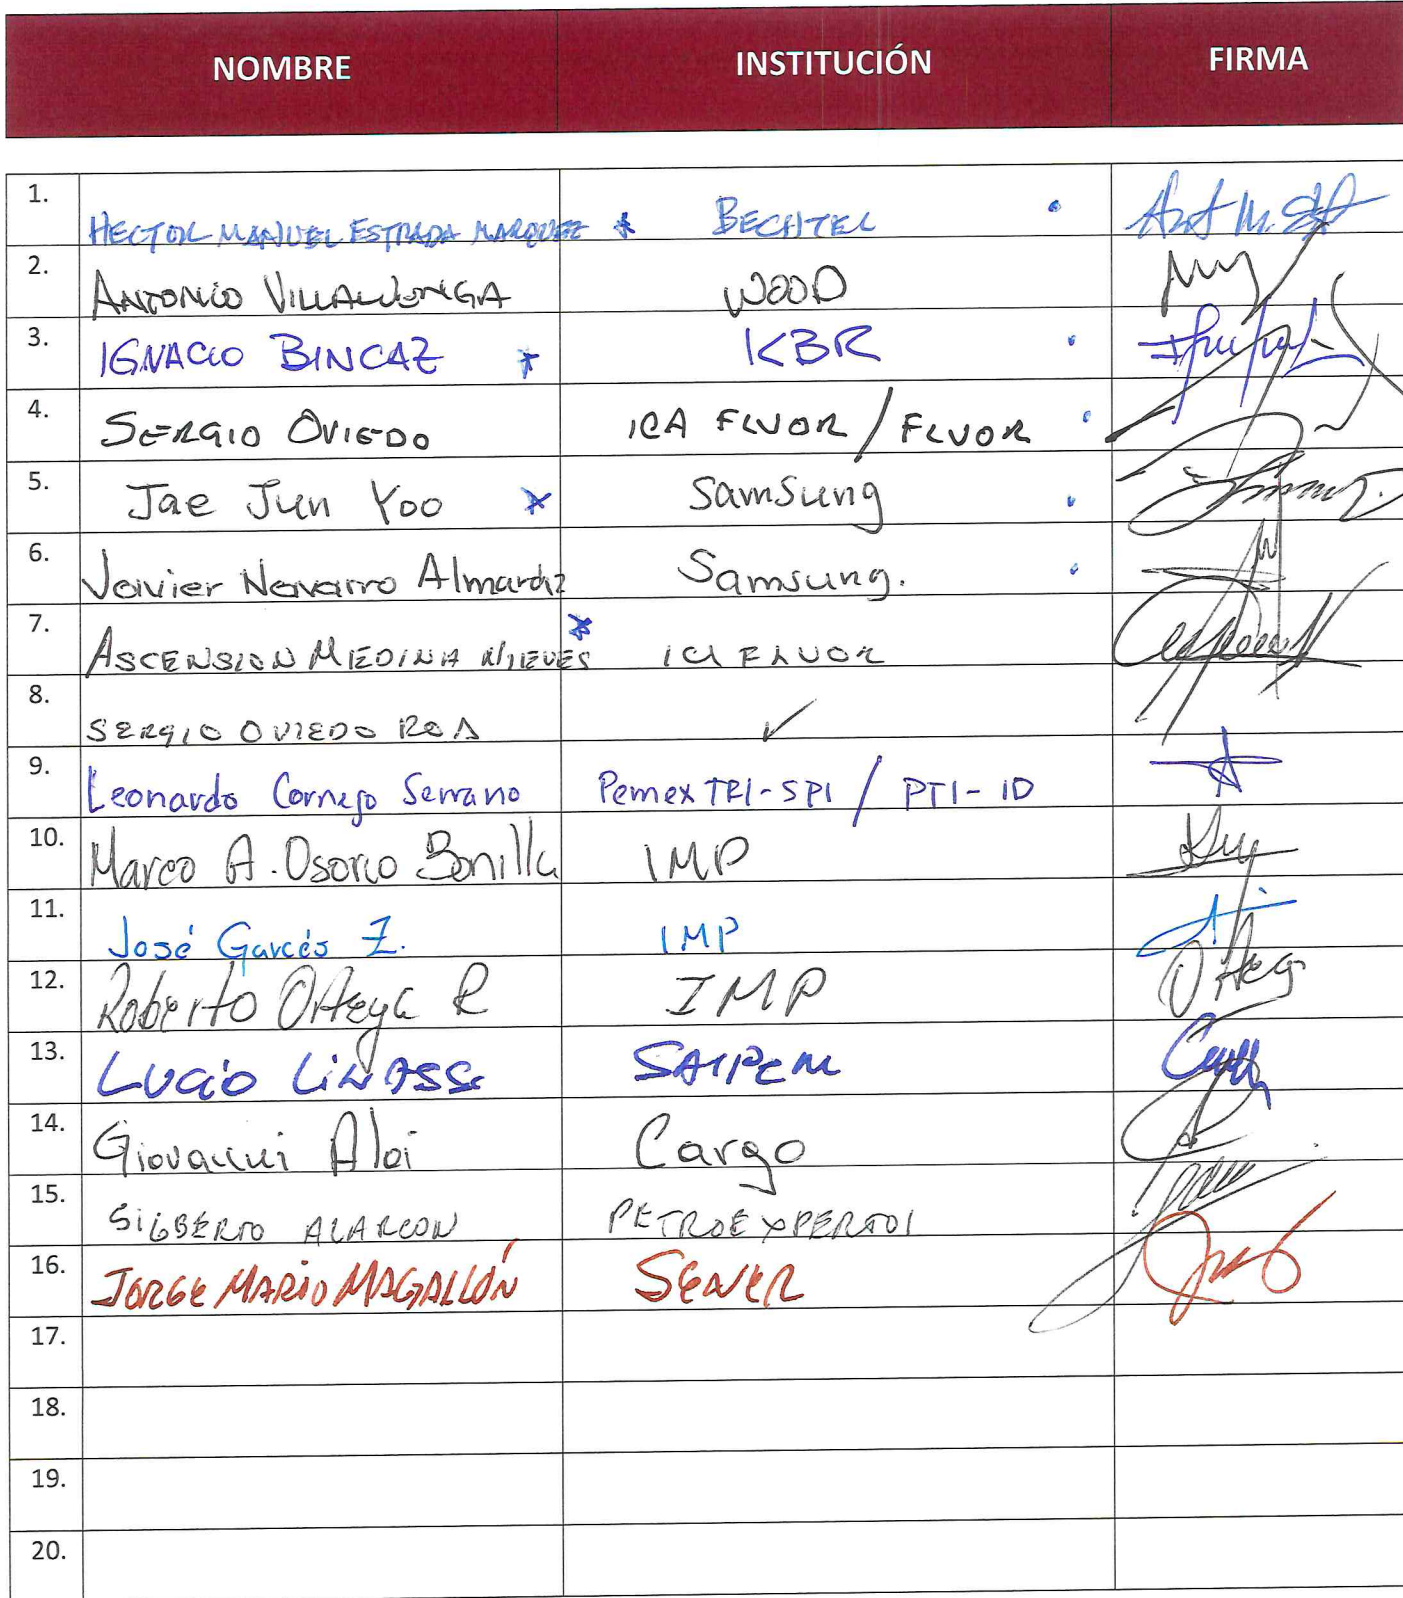 NOMBRE INSTITUCIÓN FIRMA
1. HECTOR MANUEL ESTRADA MARQUEZ * BECHTEL
2. ANTONIO VILLALUENGA WOOD
3. IGNACIO BINCAZ * KBR
4. SERGIO OVIEDO ICA FLUOR / FLUOR
5. Jae Jun Yoo * Samsung
6. Javier Navarro Almaraz Samsung.
7. ASCENSION MEDINA NIEVES * ICA FLUOR
8. SERGIO OVIEDO ROA ✓
9. Leonardo Cornejo Serrano Pemex TRI-SPI / PTI-ID
10. Marco A. Osorio Bonilla IMP
11. José Garcés Z. IMP
12. Roberto Ortega R IMP Orteg
13. LUCIO SAIPEM
14. Giovanni Aloi Cargo
15. SIGBERTO ALARCON PETROEXPERTOS
16. JORGE MARIO MAGALLÓN SENER
17.
18.
19.
20.